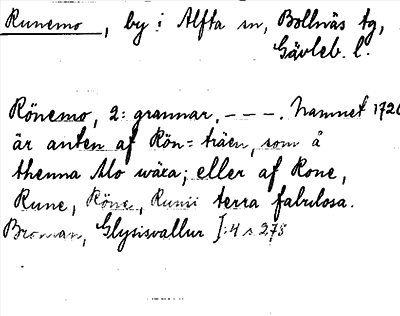 Runemo, by i Alfta sn, Bollnäs tg,
Gävleb. l.
Rönemo, 2: grannar, – – –. Namnet 1720
är anten af Rön= träen, som å
thenna Mo wäxa; eller af Rone,
Rune, Röne, Runii terra fabulosa.
Broman, Glysisvallur I:4 s. 275